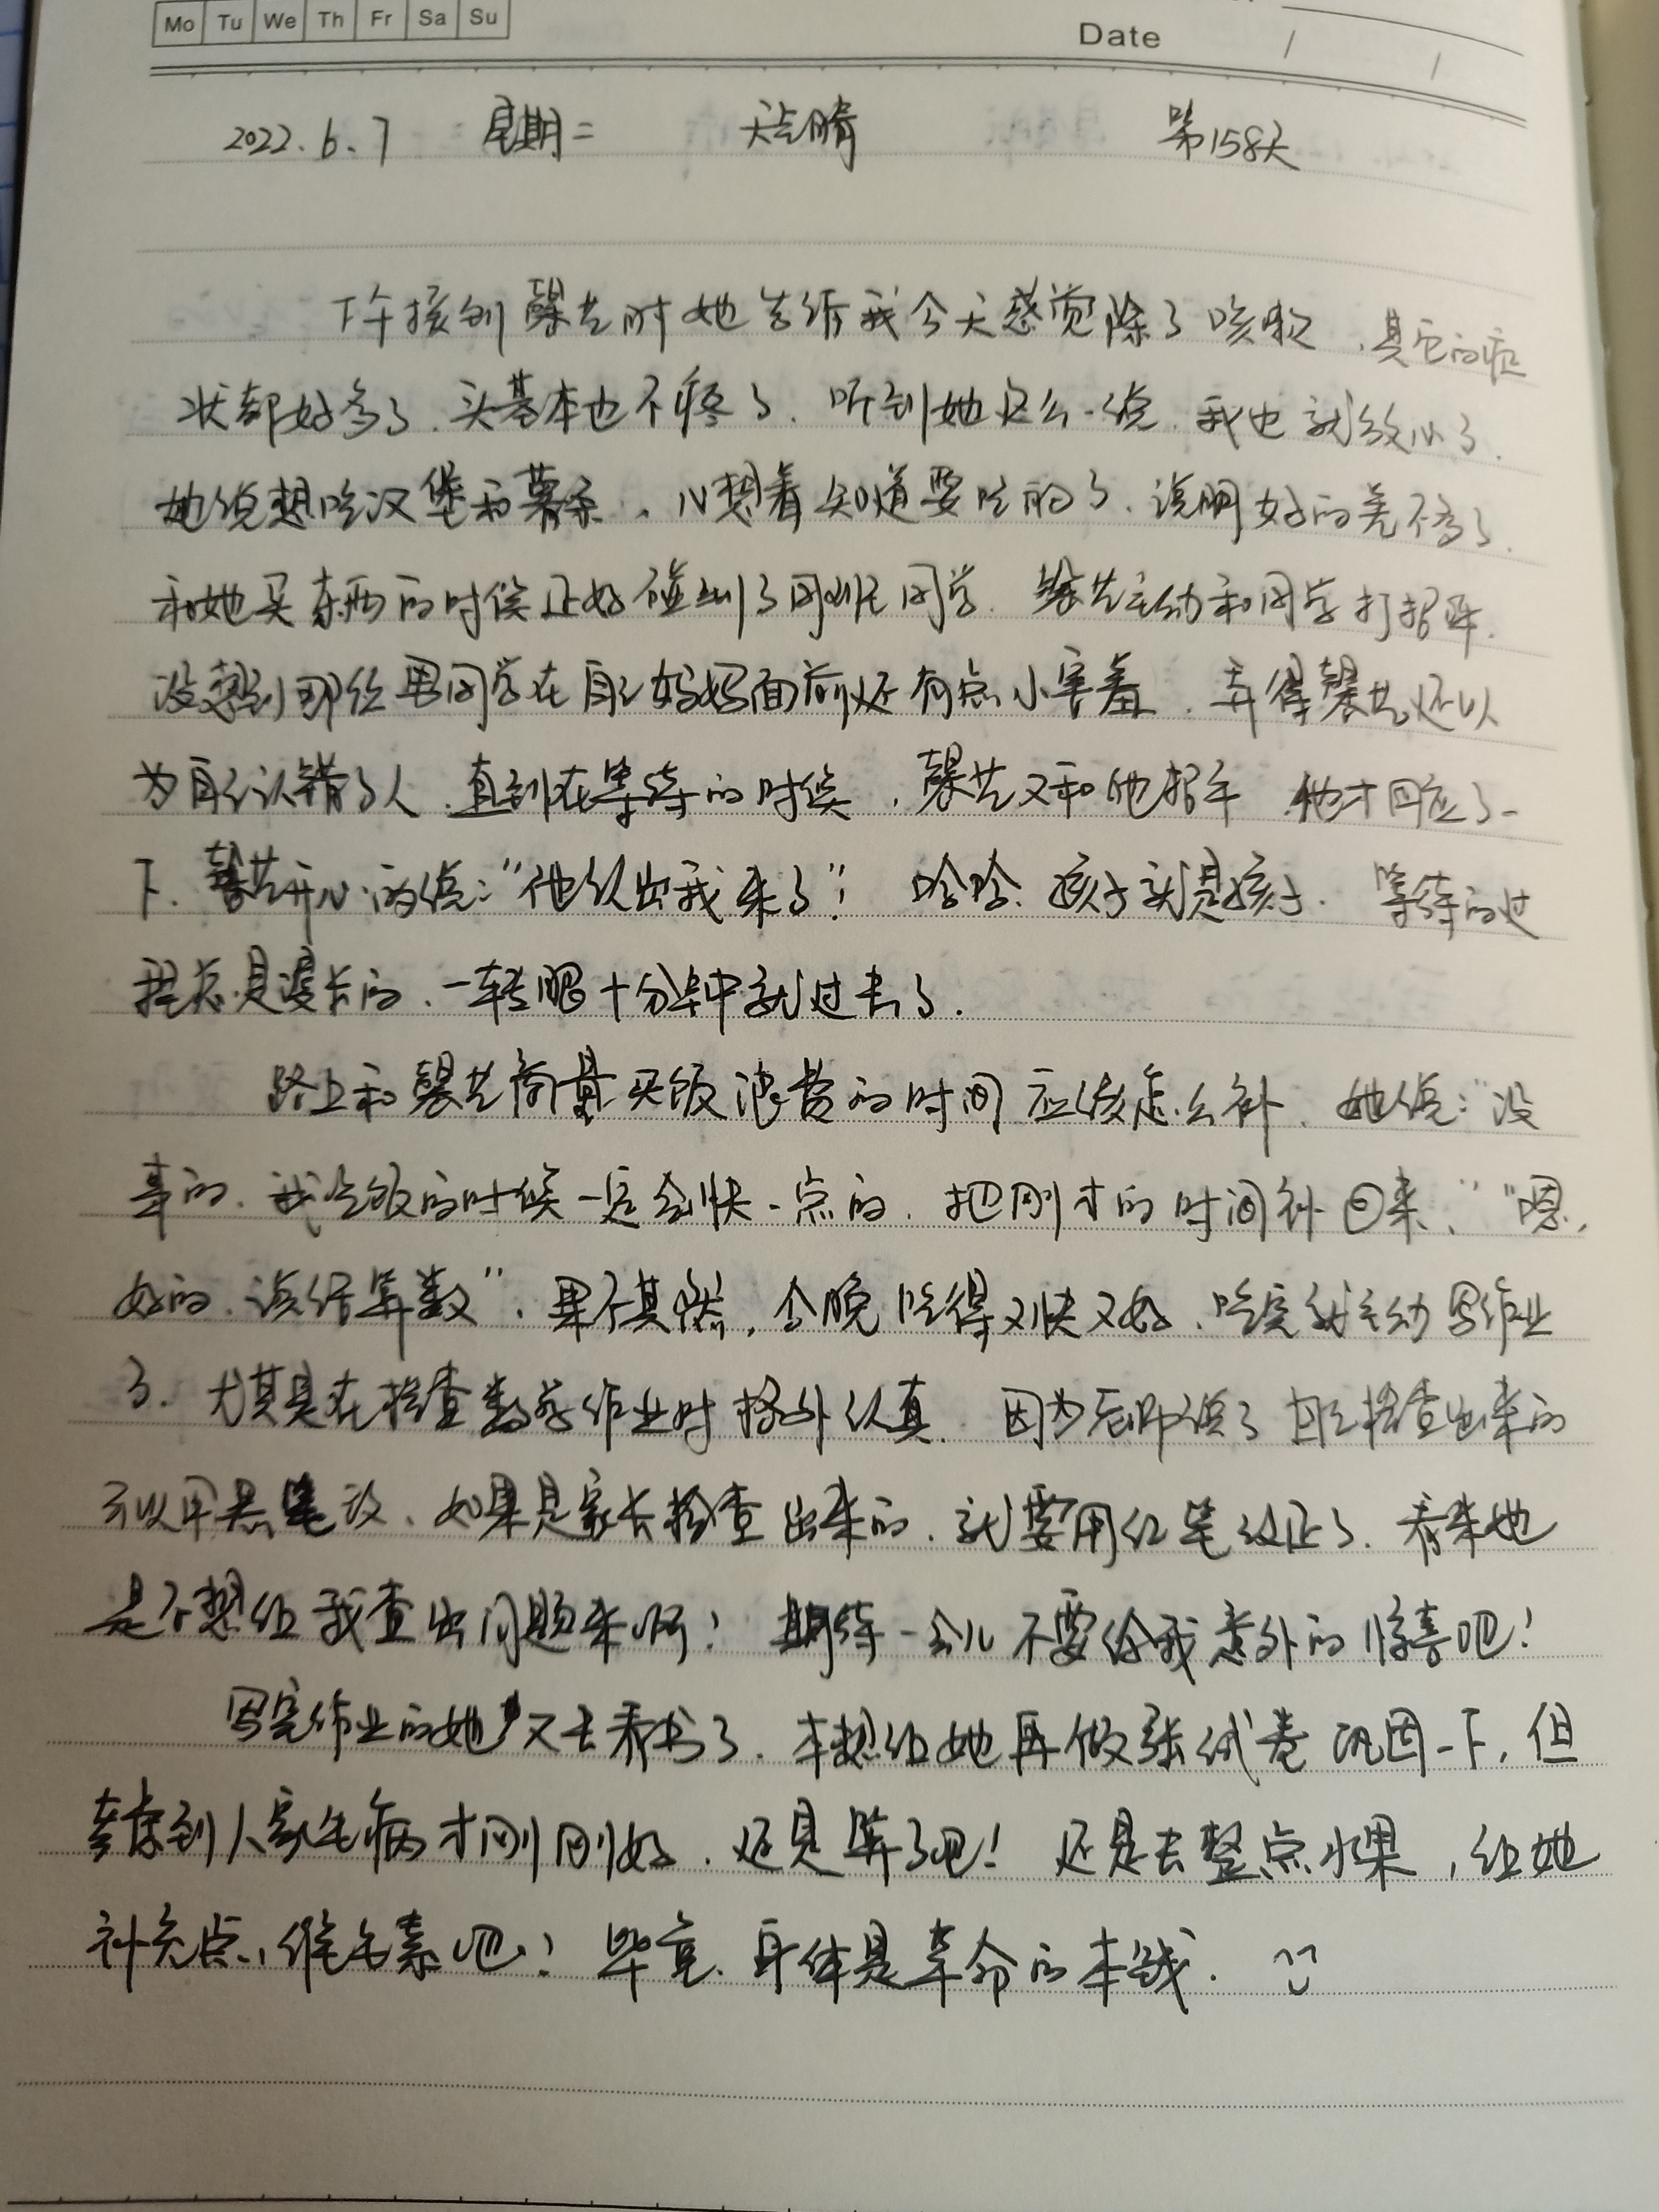 Mo Tu We Th Fr Sa Su
Date / /
2022.6.7 星期二 天气晴 第158天
下午接到馨艺时她告诉我今天感觉除了咳嗽，其它的症
状都好多了，头基本也不疼了，听到她这么一说，我也就放心了，
她说想吃汉堡和薯条，心想着知道要吃的了，说明好的差不多了，
和她买东西的时候正好碰到了同班同学，馨艺主动和同学打招呼，
没想到那位男同学在自己妈妈面前还有点小害羞，弄得馨艺还以
为自己认错了人，直到在等待的时候，馨艺又和他招手，他才回应了一
下，馨艺开心的说：“他认出我来了”！哈哈，孩子就是孩子，等待的过
程总是漫长的，一转眼十分钟就过去了。
路上和馨艺商量买饭浪费的时间应该怎么补，她说：“没
事的，我吃饭的时候一定会快一点的，把刚才的时间补回来，”“嗯，
好的，说话算数”，果不其然，今晚吃得又快又好，吃完就主动写作业
了，尤其是在检查数学作业时格外认真，因为老师说了自己检查出来的
可以用黑笔改，如果是家长检查出来的，就要用红笔改正了，看来她
是不想给我查出问题来啊！期待一会儿不要给我意外的惊喜吧！
写完作业的她又去看书了，本想给她再做张试卷巩固一下，但
考虑到人家生病才刚刚好，还是算了吧！还是去整点水果，给她
补充点维生素吧！毕竟，身体是革命的本钱。